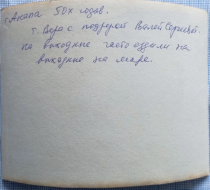 г. Анапа 50х годов.
т. Вера с подругой Валей Сергеевой.
на выходные часто ездили на
выходные на море.